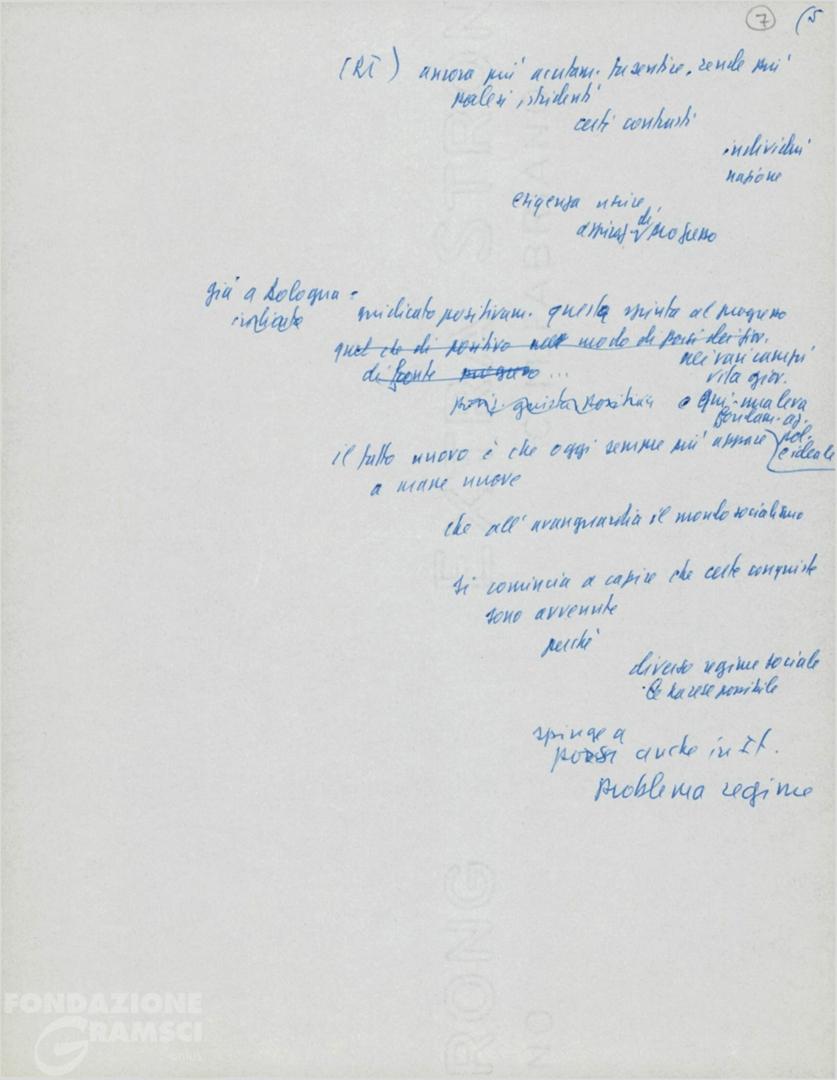 7 (5
(RI) ancora più acutam. fa sentire, rende più
palesi, stridenti
certi contrasti
individui
nazione
esigenza unire
aspiraz. di progresso
già a Bologna -
indicato
giudicato positivam. questa spinta al progresso
quel che di positivo nel modo di porsi dei giov.
di fronte progresso ...
nei vari campi
vita giov.
positiva e qui - una leva
fondam. az.
pol.
e ideale
il fatto nuovo è che oggi sempre più appare
a masse nuove
che all'avanguardia il mondo socialismo
si comincia a capire che certe conquiste
sono avvenute
perché
diverso regime sociale
le ha rese possibile
spinge a
porsi anche in It.
problema regime
FONDAZIONE
GRAMSCI
onlus